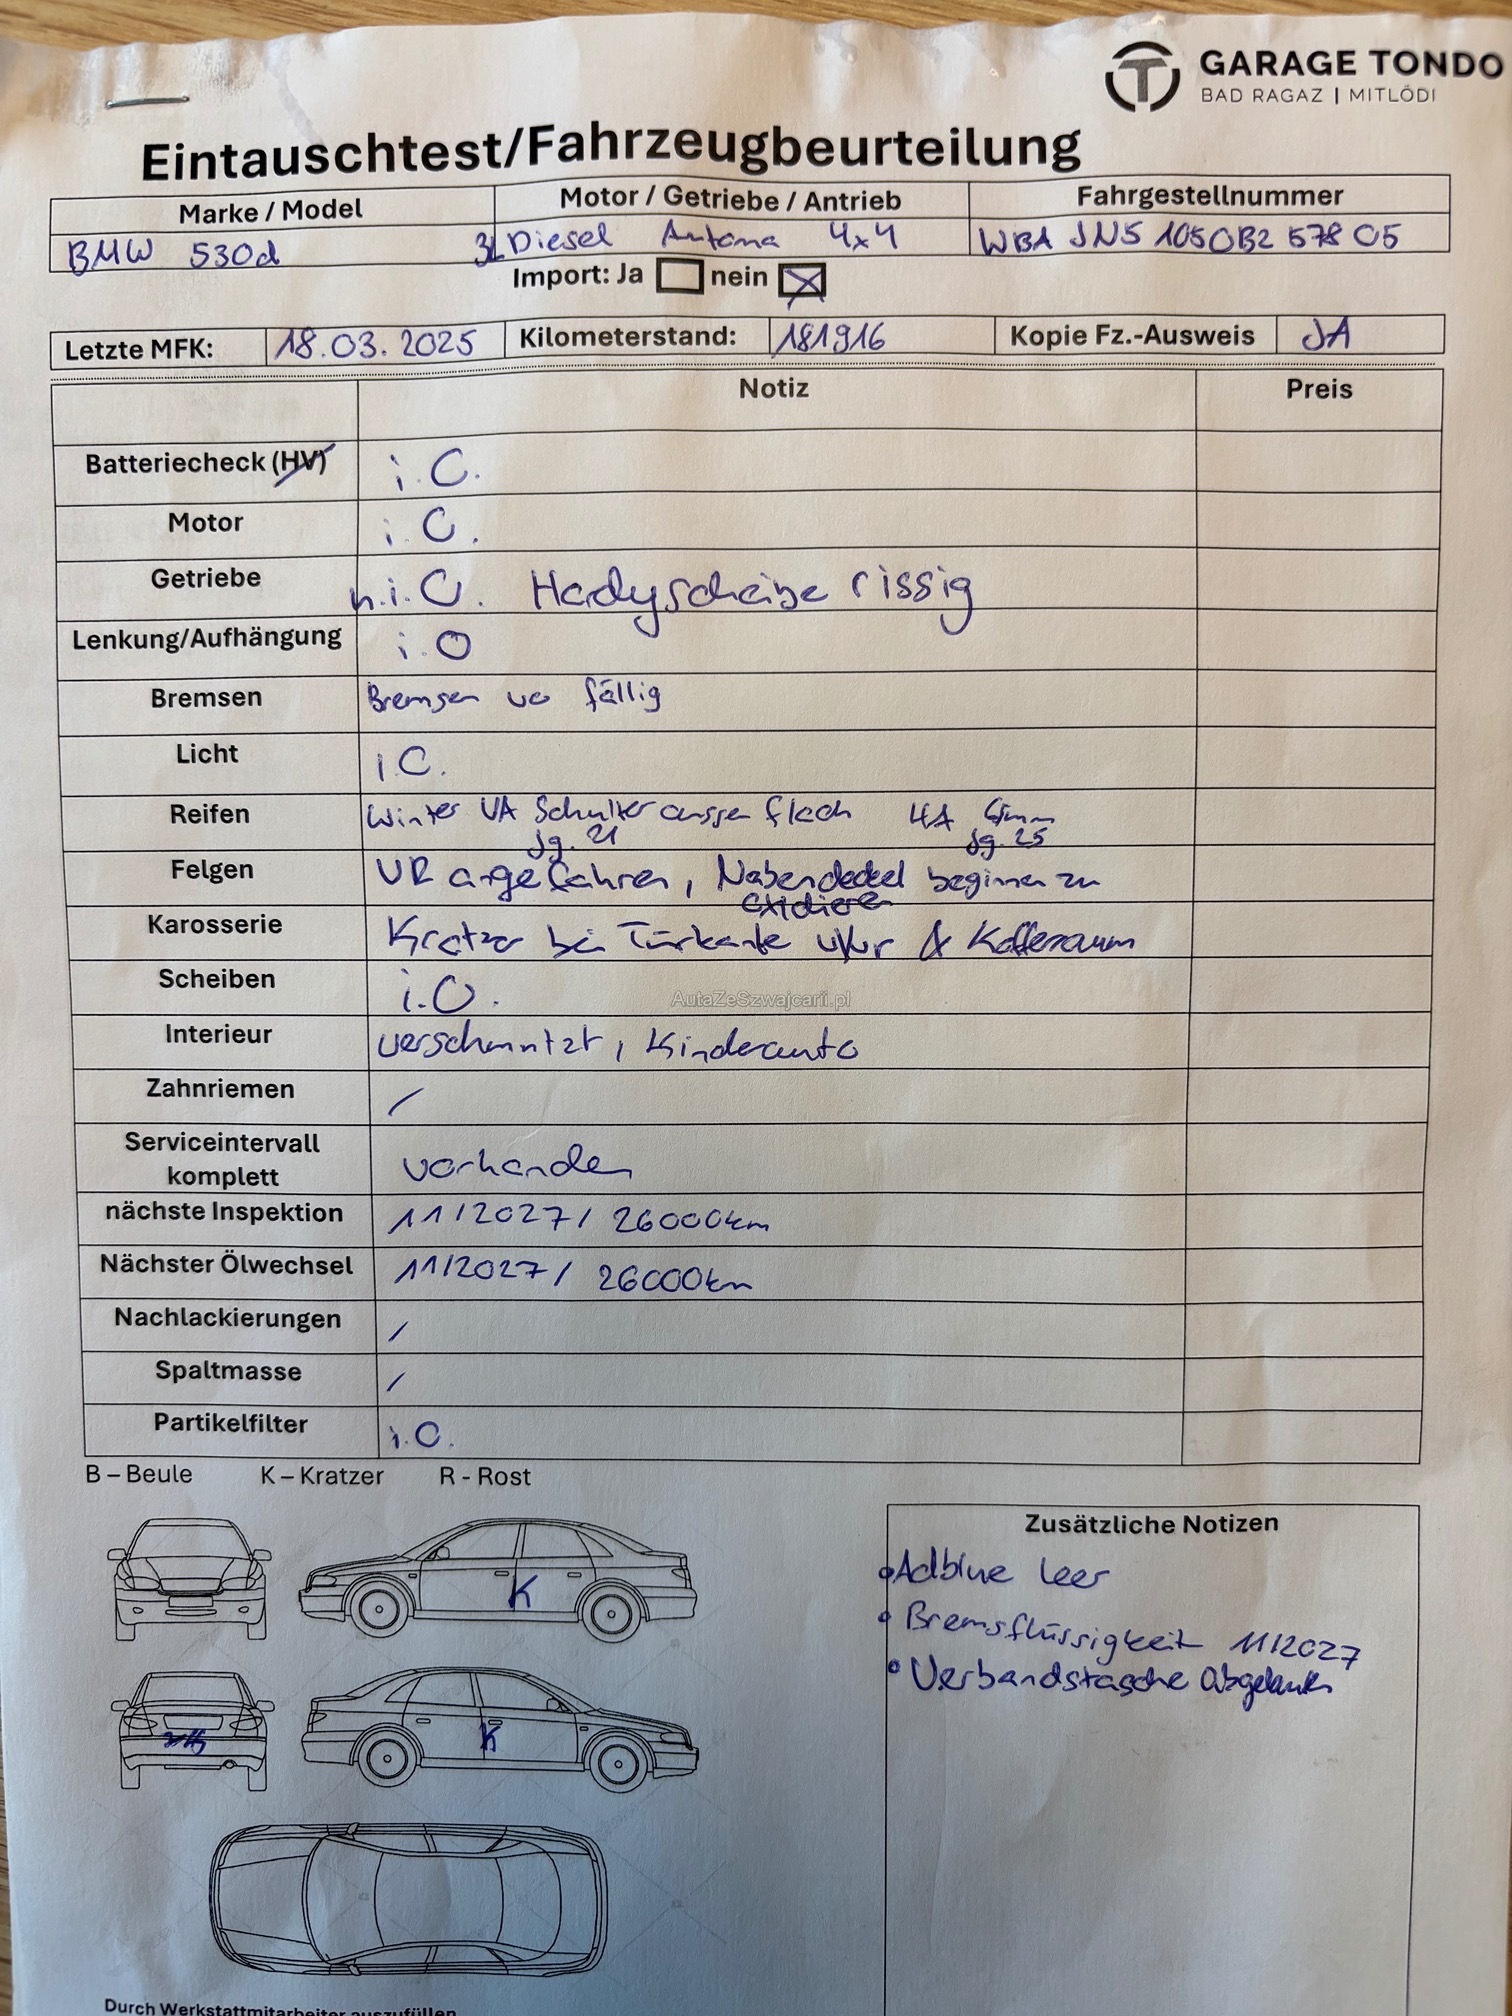 GARAGE TONDO
BAD RAGAZ | MITLÖDI
Eintauschtest/Fahrzeugbeurteilung
Marke / Model Motor / Getriebe / Antrieb Fahrgestellnummer
BMW 530d 3L Diesel Automa 4x4 WBA JN5 1050B2 578 05
Import: Ja nein
Letzte MFK: 18.03.2025 Kilometerstand: 181916 Kopie Fz.-Ausweis JA
Notiz Preis
Batteriecheck (HV) i.O.
Motor i.O.
Getriebe n.i.O. Hardyscheibe rissig
Lenkung/Aufhängung i.O
Bremsen Bremsen vo fällig
Licht i.O.
Reifen Winter VA Schulter aussen flach HA 6mm
Jg. 21 Jg. 25
Felgen VR angefahren, Nabendeckel beginnen zu
oxidieren
Karosserie Kratzer bei Türkante & Kofferraum
Scheiben i.O.
AutaZeSzwajcarii.pl
Interieur verschmutzt, Kinderauto
Zahnriemen /
Serviceintervall
komplett vorhanden
nächste Inspektion 11/2027/ 26000km
Nächster Ölwechsel 11/2027/ 26000km
Nachlackierungen /
Spaltmasse /
Partikelfilter i.O.
B – Beule K – Kratzer R - Rost
Zusätzliche Notizen
• Adblue leer
• Bremsflüssigkeit 11/2027
• Verbandstasche abgelaufen
K
K
Durch Werkstattmitarbeiter auszufüllen